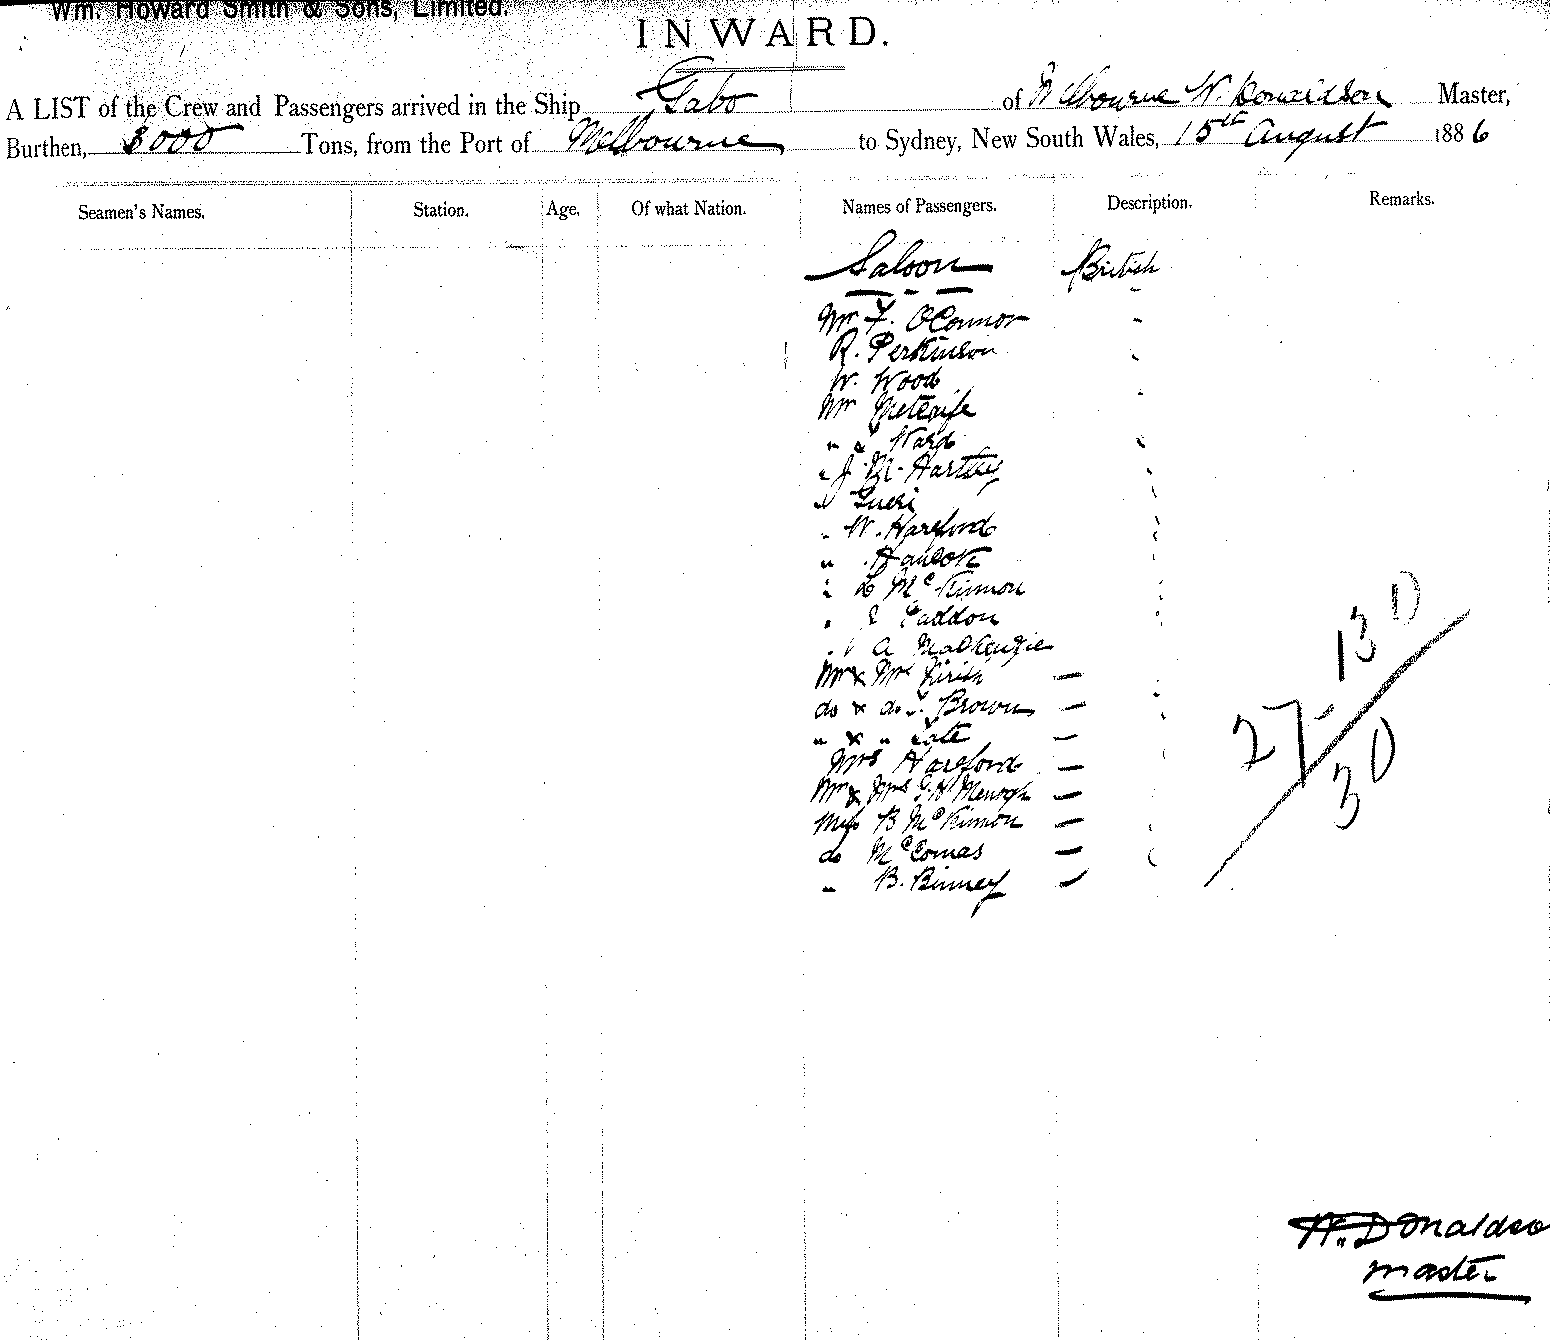 Wm. Howard Smith & Sons, Limited.
INWARD.
A LIST of the Crew and Passengers arrived in the Ship Gabo of Melbourne W. Donaldson Master,
Burthen, 3000 Tons, from the Port of Melbourne to Sydney, New South Wales, 15th August 1886
Seamen's Names. Station. Age. Of what Nation. Names of Passengers. Description. Remarks.
Saloon British
Mr F. OConnor
R. Perkinson
W. Wood
Mr Metcalfe
" " Ward
" J. M. Hartley
" Gueri
" W. Hareford
" Hancok
" L McKinnon
" J Gaddon
" A MacKenzie
Mr & Mrs
do & do J. Brown
" & " Tate
Mrs Hareford
Mr & Mrs G. H.
Miss B McKinnon
do McComas
" B. Binney
27 13 0
30
W. Donaldson
master